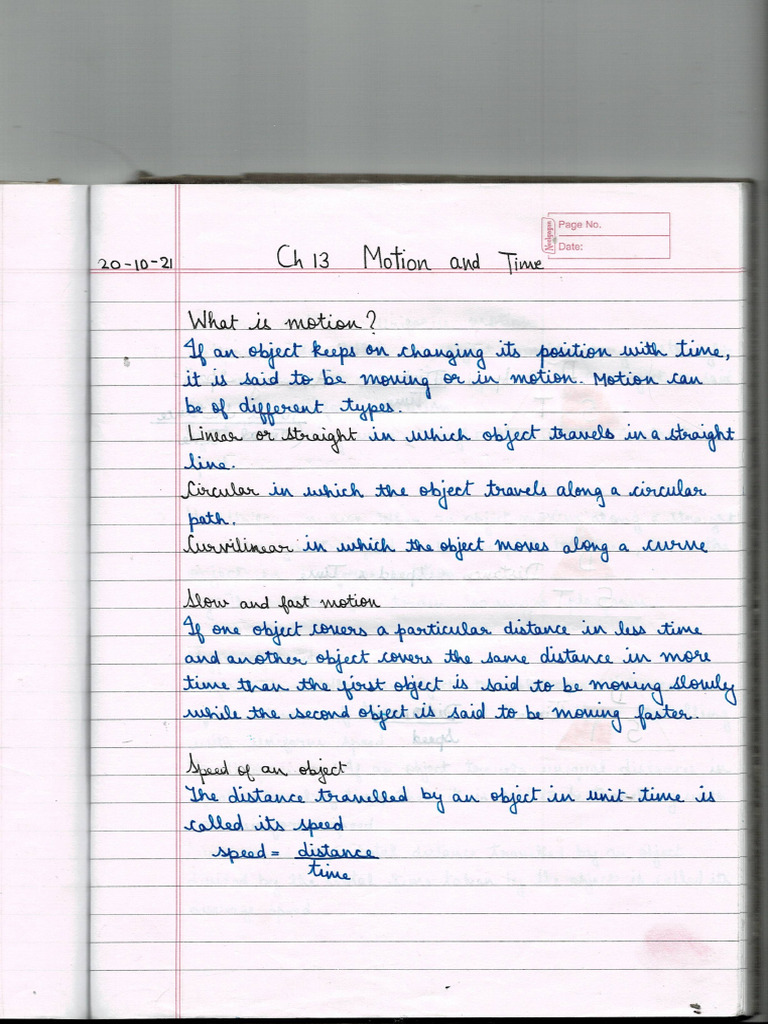 Page No.
Date:
20-10-21 Ch 13 Motion and Time
What is motion?
If an object keeps on changing its position with time,
it is said to be moving or in motion. Motion can
be of different types.
Linear or straight in which object travels in a straight
line.
Circular in which the object travels along a circular
path.
Curvilinear in which the object moves along a curve
Slow and fast motion
If one object covers a particular distance in less time
and another object covers the same distance in more
time than the first object is said to be moving slowly
while the second object is said to be moving faster.
Speed of an object
The distance travelled by an object in unit-time is
called its speed
speed = distance
time